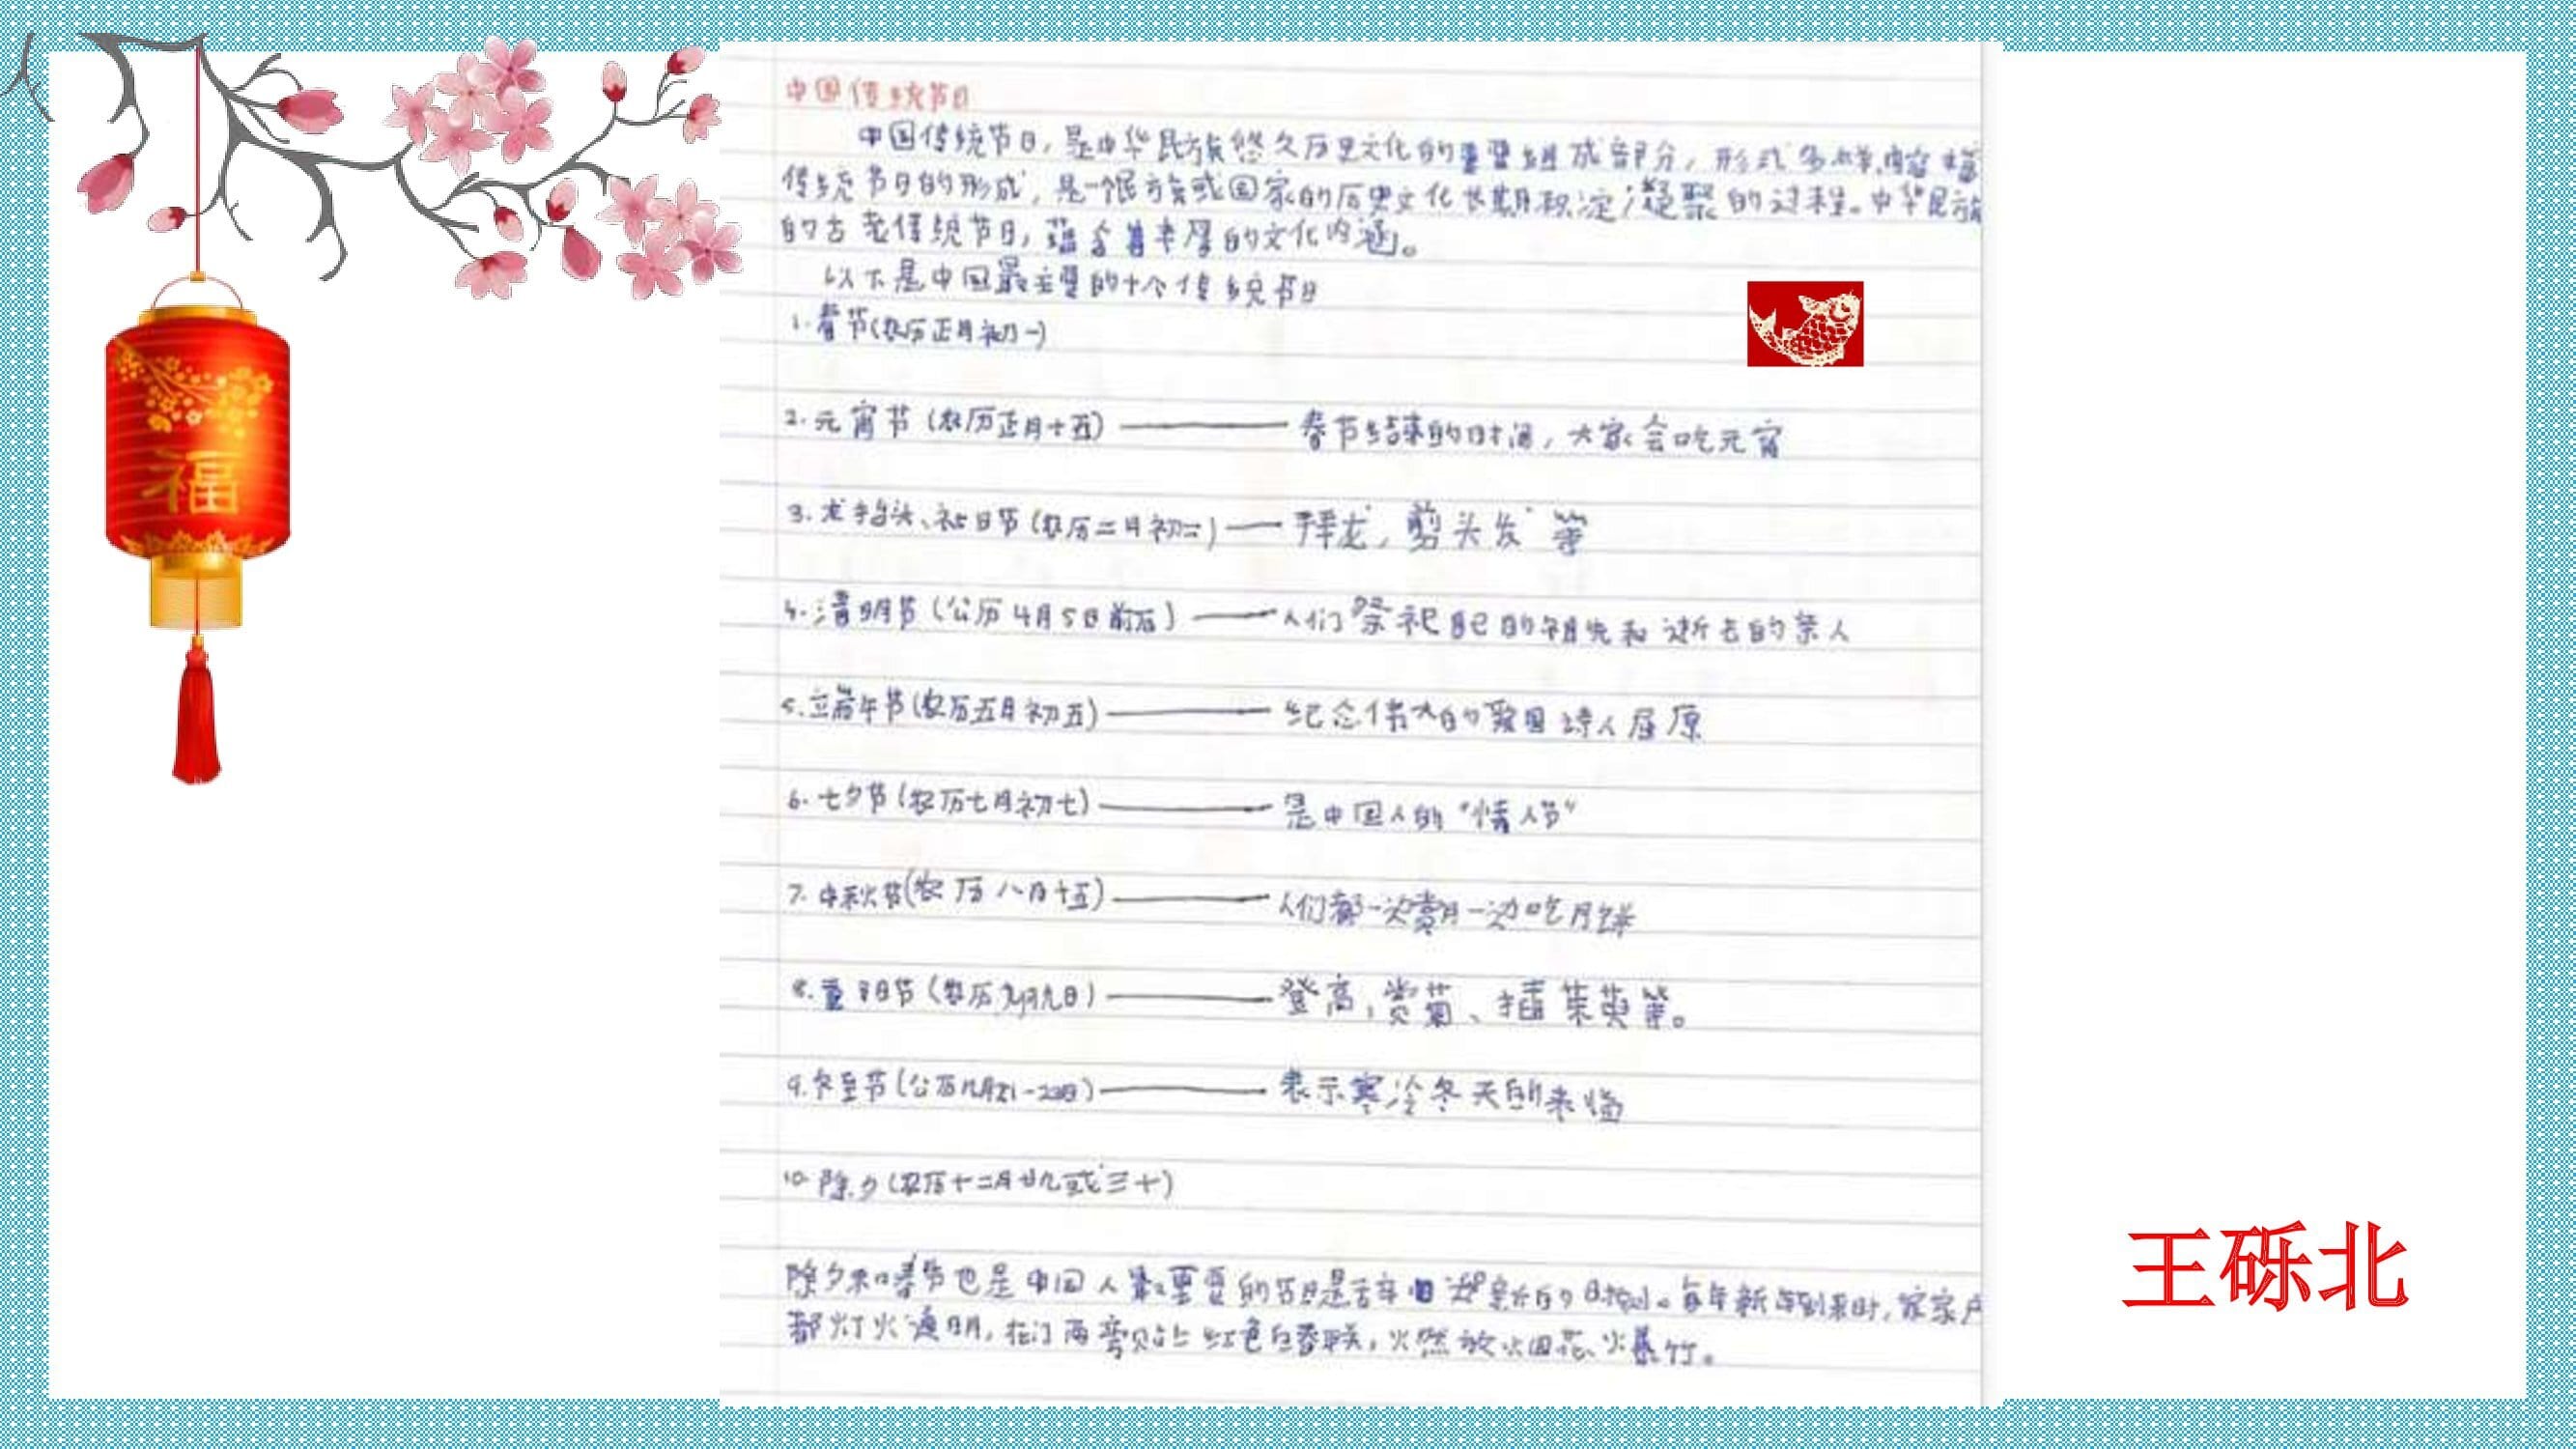 中国传统节日
中国传统节日，是中华民族悠久历史文化的重要组成部分，形式多样，内容
传统节日的形成，是一个民族或国家的历史文化长期积淀凝聚的过程。中华民族
的古老传统节日，蕴含着丰厚的文化内涵。
以下是中国最主要的十个传统节日
1.春节(农历正月初一)
2.元宵节(农历正月十五)——春节结束的时间，大家会吃元宵
3.龙抬头、社日节(农历二月初二)——拜龙，剪头发等
4.清明节(公历4月5日前后)——人们祭祀自己的祖先和逝去的亲人
5.端午节(农历五月初五)——纪念伟大的爱国诗人屈原
6.七夕节(农历七月初七)——是中国人的“情人节”
7.中秋节(农历八月十五)——人们都一边赏月一边吃月饼
8.重阳节(农历九月九日)——登高，赏菊、插茱萸等。
9.冬至节(公历12月21-23日)——表示寒冷冬天的来临
10.除夕(农历十二月廿九或三十)
除夕和春节也是中国人最重要的节日是辞旧迎新的时刻。每年新年到来时，家家户
都灯火通明，在门两旁贴上红色白春联，燃放烟花、爆竹。
福
王砾北